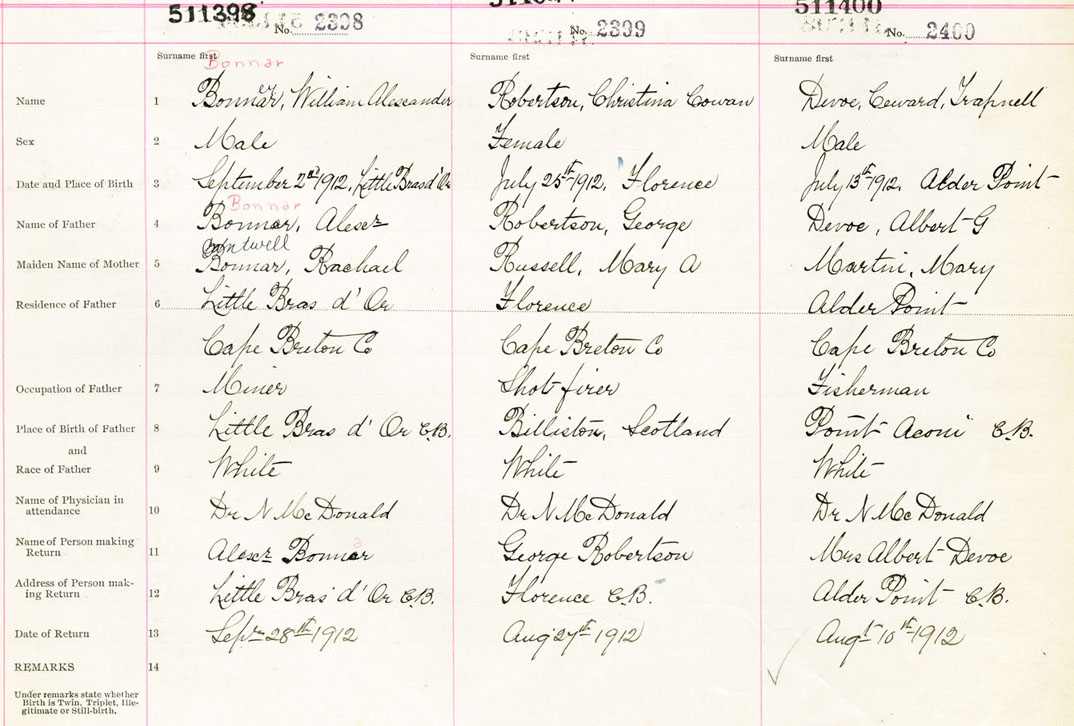 511398 511400
No. 2398 No. 2399 No. 2400
Surname first Surname first Surname first
Bonnar
er
Name 1 Bonnar, William Alexander Robertson, Christina Cowan Devoe, Edward, Trapnell
Sex 2 Male Female Male
Date and Place of Birth 3 September 2nd 1912, Little Bras d'Or July 25th 1912, Florence July 13th 1912, Alder Point
Bonnar
Name of Father 4 Bonnar, Alexr Robertson, George Devoe, Albert G
Cantwell
Maiden Name of Mother 5 Bonnar, Rachael Russell, Mary A Martin, Mary
Residence of Father 6 Little Bras d'Or Florence Alder Point
Cape Breton Co Cape Breton Co Cape Breton Co
Occupation of Father 7 Miner Shot firer Fisherman
Place of Birth of Father 8 Little Bras d'Or C.B. Billiston, Scotland Point Aconi C.B.
and
Race of Father 9 White White White
Name of Physician in
attendance 10 Dr N McDonald Dr N McDonald Dr N McDonald
Name of Person making
a
Return 11 Alexr Bonnar George Robertson Mrs Albert Devoe
Address of Person mak-
ing Return 12 Little Bras d'Or C.B. Florence C.B. Alder Point C.B.
Date of Return 13 Sept 28th 1912 Aug 27th 1912 Augt 10th 1912
REMARKS 14
Under remarks state whether
Birth is Twin. Triplet, Ille-
gitimate or Still-birth.